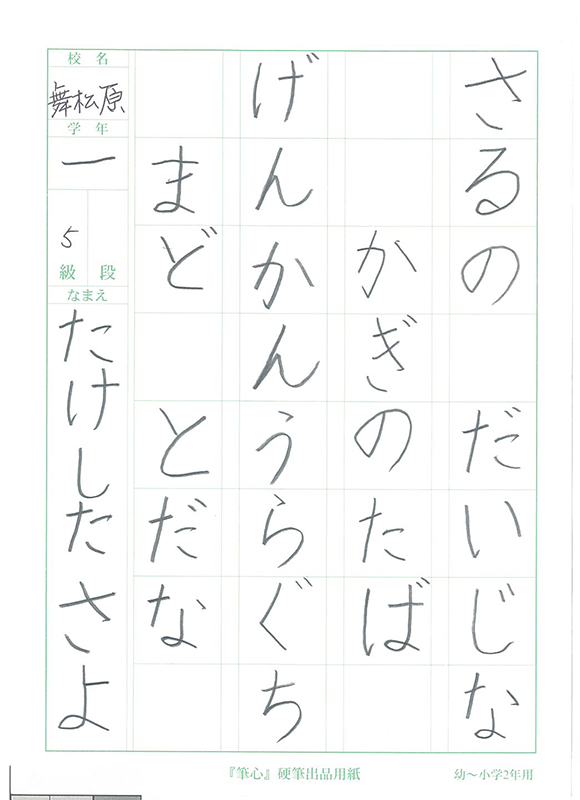 さるの だいじな
かぎのたば
げんかんうらぐち
まど とだな
校名
舞松原
学年
一
5
級 段
なまえ
たけしたさよ
『筆心』硬筆出品用紙
幼〜小学2年用